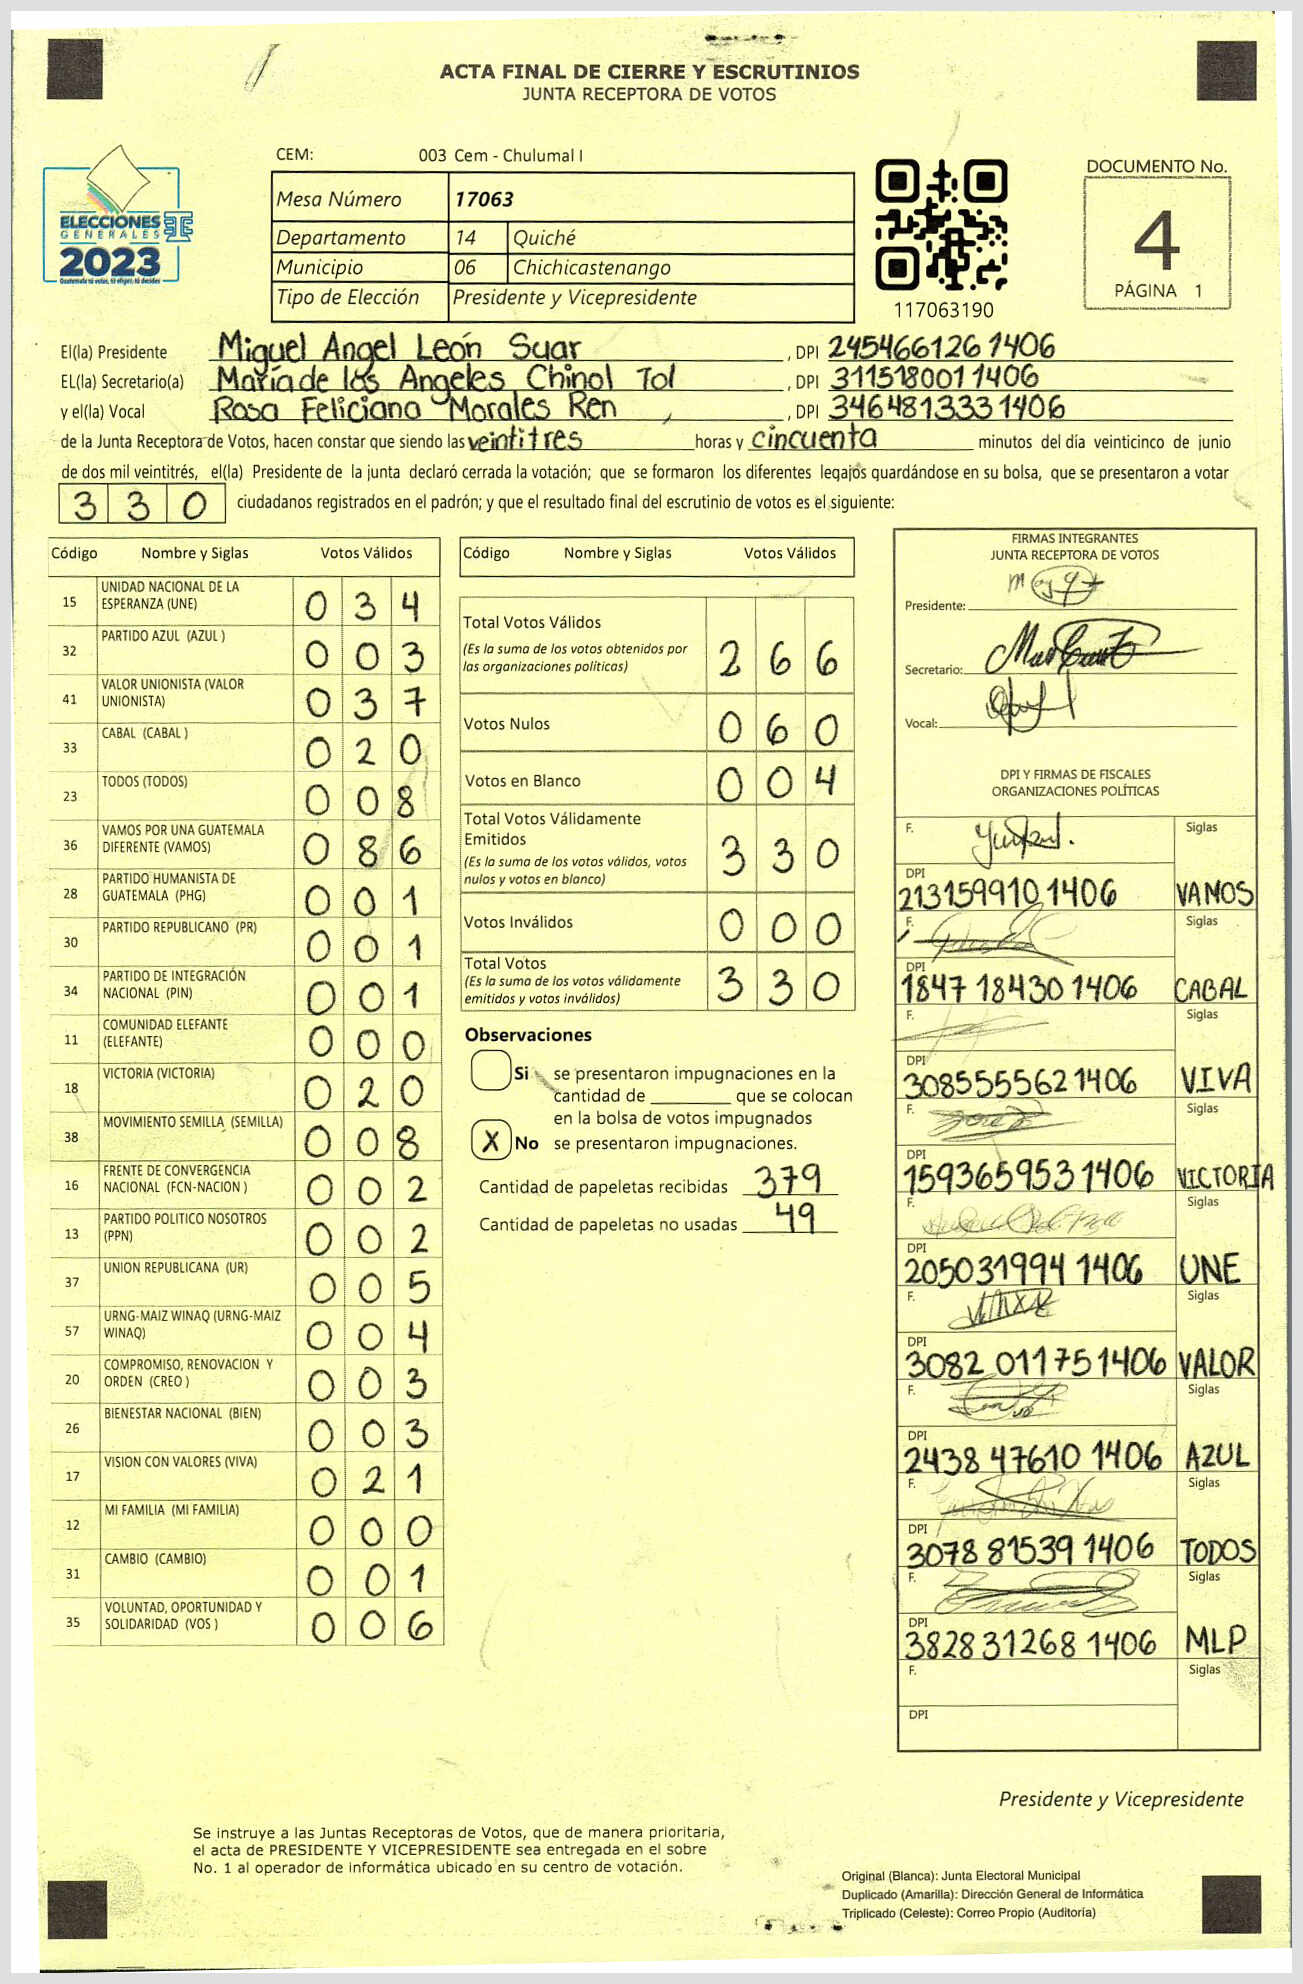 ACTA FINAL DE CIERRE Y ESCRUTINIOS
JUNTA RECEPTORA DE VOTOS
ELECCIONES
GENERALES
2023
Guatemala tú votas, tú eliges, tú decides
CEM: 003 Cem - Chulumal I
Mesa Número 17063
Departamento 14 Quiché
Municipio 06 Chichicastenango
Tipo de Elección Presidente y Vicepresidente
117063190
DOCUMENTO No.
4
PÁGINA 1
El(la) Presidente Miguel Angel León Suar, DPI 2454661261406
EL(la) Secretario(a) María de los Angeles Chinol Tol, DPI 3115180011406
y el(la) Vocal Rosa Feliciana Morales Ren, DPI 3464813331406
de la Junta Receptora de Votos, hacen constar que siendo las veintitres horas y cincuenta minutos del día veinticinco de junio
de dos mil veintitrés, el(la) Presidente de la junta declaró cerrada la votación; que se formaron los diferentes legajos guardándose en su bolsa, que se presentaron a votar
330 ciudadanos registrados en el padrón; y que el resultado final del escrutinio de votos es el siguiente:
Código Nombre y Siglas Votos Válidos
15 UNIDAD NACIONAL DE LA ESPERANZA (UNE) 034
32 PARTIDO AZUL (AZUL ) 003
41 VALOR UNIONISTA (VALOR UNIONISTA) 037
33 CABAL (CABAL ) 020
23 TODOS (TODOS) 008
36 VAMOS POR UNA GUATEMALA DIFERENTE (VAMOS) 086
28 PARTIDO HUMANISTA DE GUATEMALA (PHG) 001
30 PARTIDO REPUBLICANO (PR) 001
34 PARTIDO DE INTEGRACIÓN NACIONAL (PIN) 001
11 COMUNIDAD ELEFANTE (ELEFANTE) 000
18 VICTORIA (VICTORIA) 020
38 MOVIMIENTO SEMILLA (SEMILLA) 008
16 FRENTE DE CONVERGENCIA NACIONAL (FCN-NACION ) 002
13 PARTIDO POLITICO NOSOTROS (PPN) 002
37 UNION REPUBLICANA (UR) 005
57 URNG-MAIZ WINAQ (URNG-MAIZ WINAQ) 004
20 COMPROMISO, RENOVACION Y ORDEN (CREO ) 003
26 BIENESTAR NACIONAL (BIEN) 003
17 VISION CON VALORES (VIVA) 021
12 MI FAMILIA (MI FAMILIA) 000
31 CAMBIO (CAMBIO) 001
35 VOLUNTAD, OPORTUNIDAD Y SOLIDARIDAD (VOS ) 006
Código Nombre y Siglas Votos Válidos
Total Votos Válidos 266
(Es la suma de los votos obtenidos por
las organizaciones políticas)
Votos Nulos 060
Votos en Blanco 004
Total Votos Válidamente
Emitidos 330
(Es la suma de los votos válidos, votos
nulos y votos en blanco)
Votos Inválidos 000
Total Votos 330
(Es la suma de los votos válidamente
emitidos y votos inválidos)
Observaciones
Si se presentaron impugnaciones en la
cantidad de ________ que se colocan
en la bolsa de votos impugnados
X No se presentaron impugnaciones.
Cantidad de papeletas recibidas 379
Cantidad de papeletas no usadas 49
FIRMAS INTEGRANTES
JUNTA RECEPTORA DE VOTOS
Presidente:
Secretario:
Vocal:
DPI Y FIRMAS DE FISCALES
ORGANIZACIONES POLÍTICAS
F. Siglas
DPI 2131599101406 VAMOS
F. Siglas
DPI 1847 18430 1406 CABAL
F. Siglas
DPI 3085555621406 VIVA
F. Siglas
DPI 1593659531406 VICTORIA
F. Siglas
DPI 205031994 1406 UNE
F. Siglas
DPI 3082 011751406 VALOR
F. Siglas
DPI 2438 47610 1406 AZUL
F. Siglas
DPI 3078 81539 1406 TODOS
F. Siglas
DPI 3828 31268 1406 MLP
F. Siglas
DPI
Presidente y Vicepresidente
Se instruye a las Juntas Receptoras de Votos, que de manera prioritaria,
el acta de PRESIDENTE Y VICEPRESIDENTE sea entregada en el sobre
No. 1 al operador de informática ubicado en su centro de votación.
Original (Blanca): Junta Electoral Municipal
Duplicado (Amarilla): Dirección General de Informática
Triplicado (Celeste): Correo Propio (Auditoría)